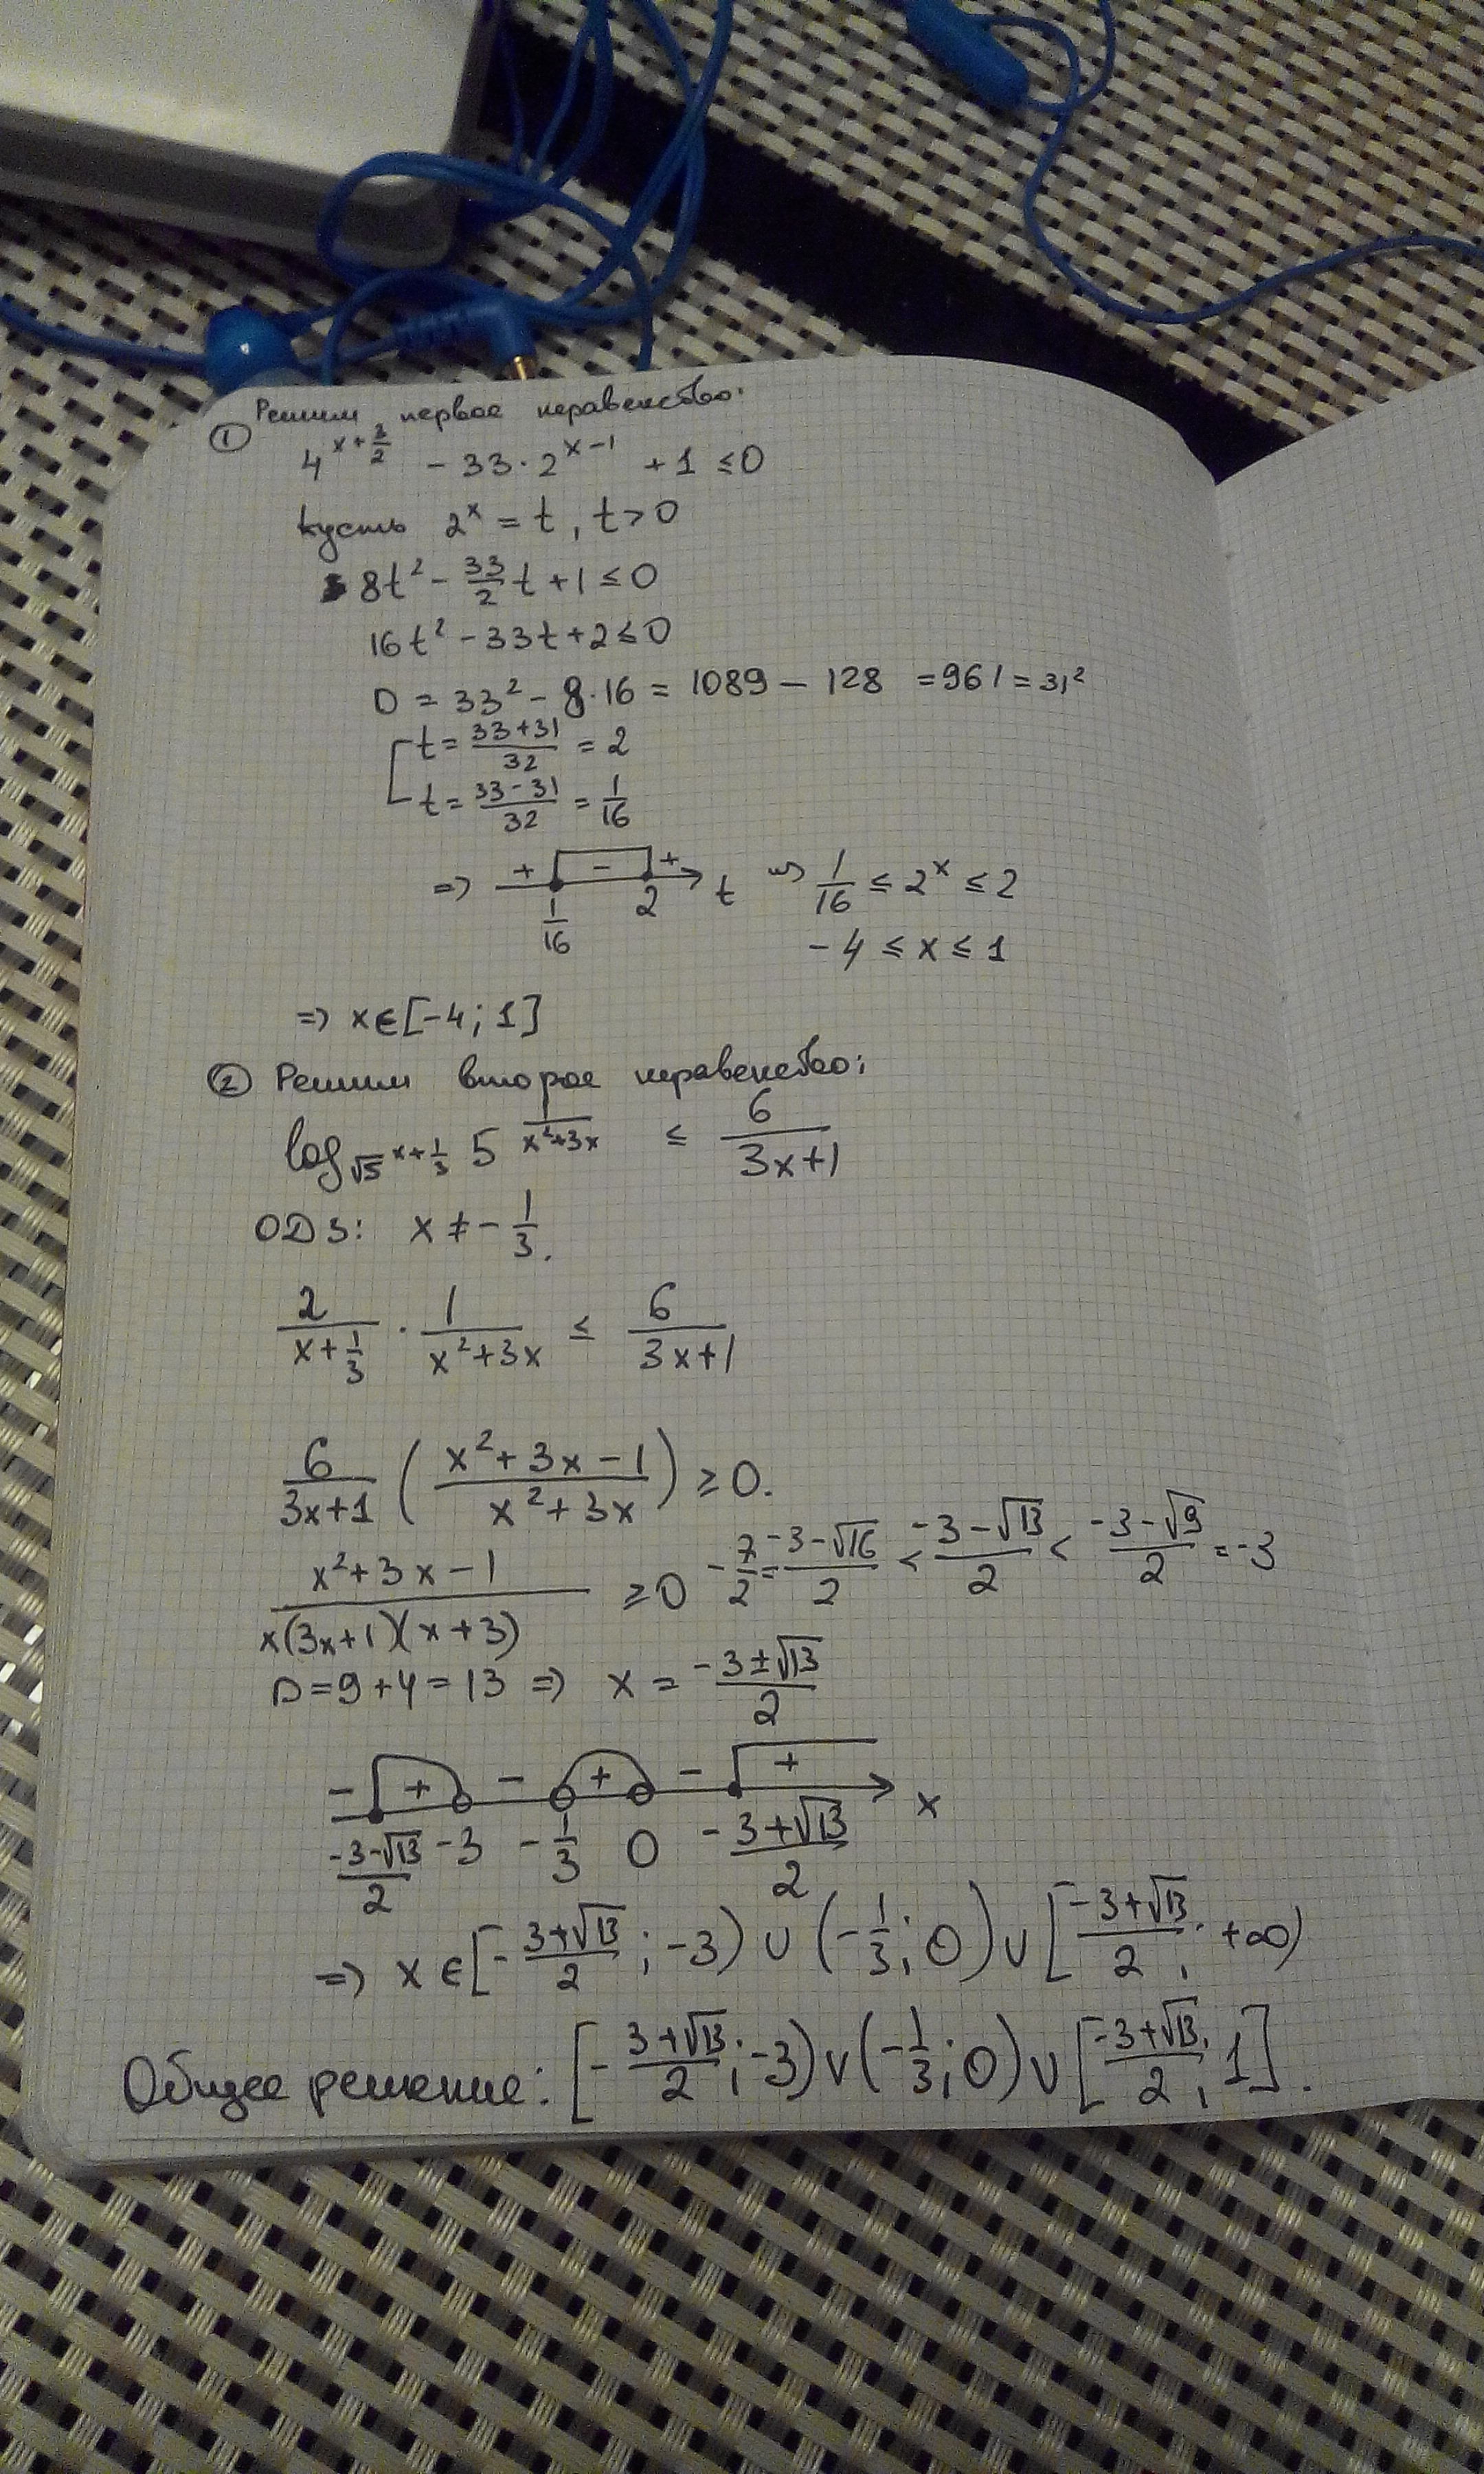 ① Решим первое неравенство:
4^{x+\frac{3}{2}} - 33·2^{x-1} + 1 ≤ 0
пусть 2^x = t, t > 0
8t² - \frac{33}{2}t + 1 ≤ 0
16t² - 33t + 2 ≤ 0
D = 33² - 8·16 = 1089 - 128 = 961 = 31²
t = \frac{33+31}{32} = 2
t = \frac{33-31}{32} = \frac{1}{16}
=> + - + t => \frac{1}{16} ≤ 2^x ≤ 2
\frac{1}{16} 2
-4 ≤ x ≤ 1
=> x ∈ [-4; 1]
② Решим второе неравенство:
log_{\sqrt{5}^{x+\frac{1}{3}}} 5^{\frac{1}{x²+3x}} ≤ \frac{6}{3x+1}
ОДЗ: x ≠ -\frac{1}{3}.
\frac{2}{x+\frac{1}{3}} · \frac{1}{x²+3x} ≤ \frac{6}{3x+1}
\frac{6}{3x+1} (\frac{x²+3x-1}{x²+3x}) ≥ 0.
\frac{x²+3x-1}{x(3x+1)(x+3)} ≥ 0 -\frac{7}{2} = \frac{-3-\sqrt{16}}{2} < \frac{-3-\sqrt{13}}{2} < \frac{-3-\sqrt{9}}{2} = -3
D = 9+4 = 13 => x = \frac{-3±\sqrt{13}}{2}
- + - + - + x
\frac{-3-\sqrt{13}}{2} -3 -\frac{1}{3} 0 \frac{-3+\sqrt{13}}{2}
=> x ∈ [-\frac{3+\sqrt{13}}{2}; -3) ∪ (-\frac{1}{3}; 0) ∪ [\frac{-3+\sqrt{13}}{2}; +∞)
Общее решение: [-\frac{3+\sqrt{13}}{2}; -3) ∪ (-\frac{1}{3}; 0) ∪ [\frac{-3+\sqrt{13}}{2}; 1].